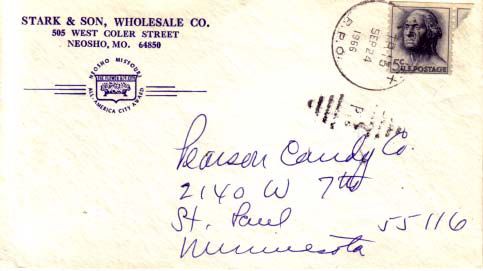 STARK & SON, WHOLESALE CO.
505 WEST COLER STREET
NEOSHO, MO. 64850
NEOSHO MISSOURI
ALL-AMERICA CITY AWARD
R.P.O.
SEP 24
1966
5¢
U.S. POSTAGE
Pearson Candy Co.
2140 W 7th
St. Paul 55116
Minnesota